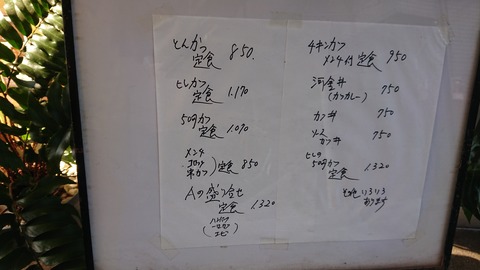 とんかつ
定食 850.
ヒレカツ
定食 1,170
50gカツ
定食 1,070
メンチ
コロッケ
串カツ 定食 850
Aの盛り合せ
定食 1,320
エビ
チキンカツ
メンチ付定食 950
河金丼
(カツカレー) 750
カツ丼 750
カツ丼 750
ヒレの
50gカツ
定食 1,320
その他いろいろ
あります